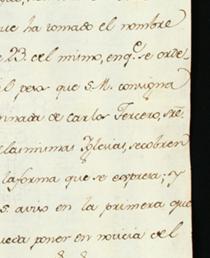 ue ha tomado el nombre
e 23. del mismo, enq.e se orde-
el peso que S. M. consigna
minada de Carlos Tercero, sre.
elas mismas Yglesias, se cobren
la forma que se expresa; y
S. aviso en la primera que
ueda poner en noticia del